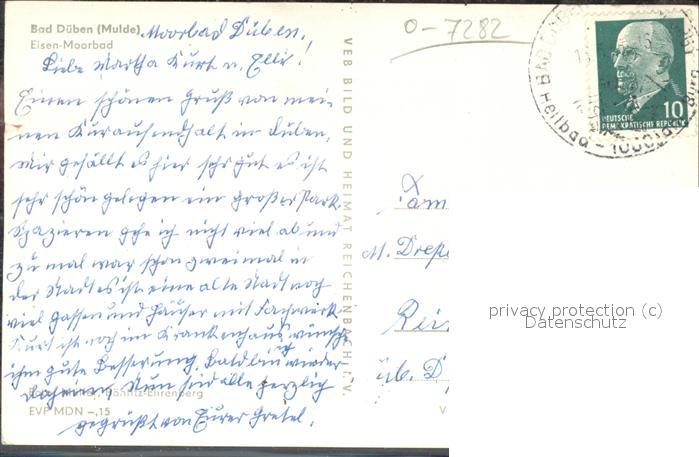 Bad Düben (Mulde)
Eisen-Moorbad
Moorbad Düben,
Liebe Martha Kurt u. Elli!
Einen schönen Gruß von mei-
nen Kuraufendhalt in Düben,
Mir gefällt es hier sehr gut es ist
sehr schön gelegen ein großer Park.
Spazieren gehe ich nicht viel ab und
zu mal war schon zweimal in
der Stadt es ist eine alte Stadt noch
viel Gassen und Häuser mit Fachwerk
Kurt ist noch im Krankenhaus wünsche
ihm gute Besserung. Baldig wieder
daheim Nun seid alle herzlich
gegrüßt von Eurer Gretel.
EVP MDN -,15
VEB BILD UND HEIMAT REICHENBACH I. V.
0-7282
BAD
Heilbad
DEUTSCHE
DEMOKRATISCHE REPUBLIK
10
Fam
M.
üb. D
privacy protection (c)
Datenschutz